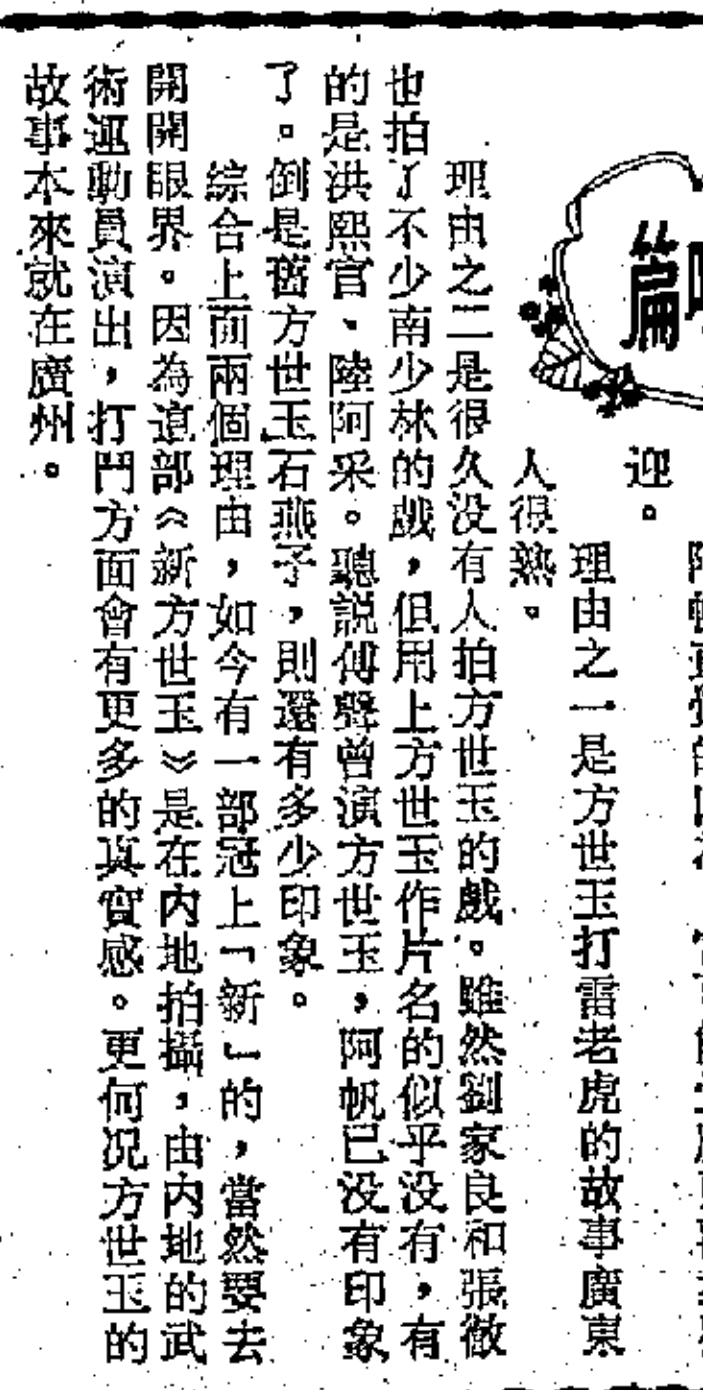 篇
迎。
理由之一是方世玉打雷老虎的故事廣東
人很熟。
理由之二是很久没有人拍方世玉的戲。雖然劉家良和張徹
也拍了不少南少林的戲，但用上方世玉作片名的似乎没有，有
的是洪熙官、陸阿采。聽説傅聲曾演方世玉，阿帆已没有印象
了。倒是舊方世玉石燕子，則還有多少印象。
綜合上面兩個理由，如今有一部冠上「新」的，當然要去
開開眼界。因為這部《新方世玉》是在内地拍攝，由内地的武
術運動員演出，打鬥方面會有更多的真實感。更何况方世玉的
故事本來就在廣州。